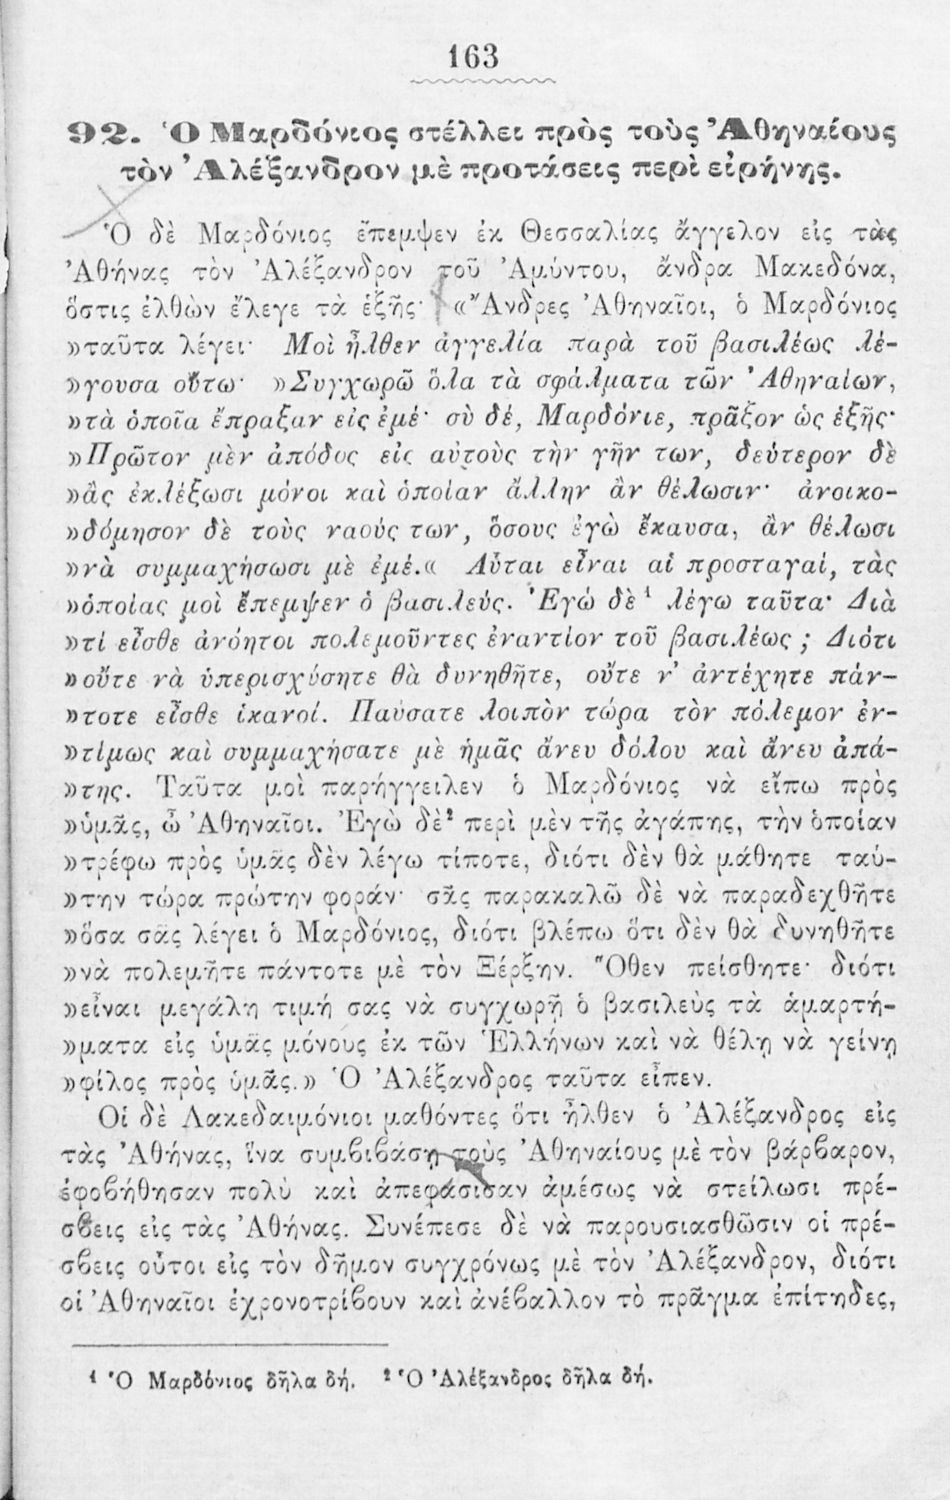 163
92. Ὁ Μαρδόνιος στέλλει πρὸς τοὺς Ἀθηναίους
τὸν Ἀλέξανδρον μὲ προτάσεις περὶ εἰρήνης.
Ὁ δὲ Μαρδόνιος ἔπεμψεν ἐκ Θεσσαλίας ἄγγελον εἰς τὰς
Ἀθήνας τὸν Ἀλέξανδρον τοῦ Ἀμύντου, ἄνδρα Μακεδόνα,
ὅστις ἐλθὼν ἔλεγε τὰ ἑξῆς· «Ἄνδρες Ἀθηναῖοι, ὁ Μαρδόνιος
»ταῦτα λέγει· Μοὶ ἦλθεν ἀγγελία παρὰ τοῦ βασιλέως λέ-
»γουσα οὕτω· »Συγχωρῶ ὅλα τὰ σφάλματα τῶν Ἀθηναίων,
»τὰ ὁποῖα ἔπραξαν εἰς ἐμέ· σὺ δέ, Μαρδόνιε, πρᾶξον ὡς ἑξῆς·
»Πρῶτον μὲν ἀπόδος εἰς αὐτοὺς τὴν γῆν των, δεύτερον δὲ
»ἂς ἐκλέξωσι μόνοι καὶ ὁποίαν ἄλλην ἂν θέλωσιν· ἀνοικο-
»δόμησον δὲ τοὺς ναούς των, ὅσους ἐγὼ ἔκαυσα, ἂν θέλωσι
»νὰ συμμαχήσωσι μὲ ἐμέ.« Αὗται εἶναι αἱ προσταγαί, τὰς
»ὁποίας μοὶ ἔπεμψεν ὁ βασιλεύς. Ἐγὼ δὲ¹ λέγω ταῦτα· Διὰ
»τί εἶσθε ἀνόητοι πολεμοῦντες ἐναντίον τοῦ βασιλέως ; Διότι
»οὔτε νὰ ὑπερισχύσητε θὰ δυνηθῆτε, οὔτε ν' ἀντέχητε πάν-
»τοτε εἶσθε ἱκανοί. Παύσατε λοιπὸν τώρα τὸν πόλεμον ἐν-
»τίμως καὶ συμμαχήσατε μὲ ἡμᾶς ἄνευ δόλου καὶ ἄνευ ἀπά-
»της. Ταῦτα μοὶ παρήγγειλεν ὁ Μαρδόνιος νὰ εἴπω πρὸς
»ὑμᾶς, ὦ Ἀθηναῖοι. Ἐγὼ δὲ² περὶ μὲν τῆς ἀγάπης, τὴν ὁποίαν
»τρέφω πρὸς ὑμᾶς δὲν λέγω τίποτε, διότι δὲν θὰ μάθητε ταύ-
»την τώρα πρώτην φοράν· σᾶς παρακαλῶ δὲ νὰ παραδεχθῆτε
»ὅσα σᾶς λέγει ὁ Μαρδόνιος, διότι βλέπω ὅτι δὲν θὰ δυνηθῆτε
»νὰ πολεμῆτε πάντοτε μὲ τὸν Ξέρξην. Ὅθεν πείσθητε· διότι
»εἶναι μεγάλη τιμή σας νὰ συγχωρῇ ὁ βασιλεὺς τὰ ἁμαρτή-
»ματα εἰς ὑμᾶς μόνους ἐκ τῶν Ἑλλήνων καὶ νὰ θέλῃ νὰ γείνῃ
»φίλος πρὸς ὑμᾶς.» Ὁ Ἀλέξανδρος ταῦτα εἶπεν.
Οἱ δὲ Λακεδαιμόνιοι μαθόντες ὅτι ἦλθεν ὁ Ἀλέξανδρος εἰς
τὰς Ἀθήνας, ἵνα συμβιβάσῃ τοὺς Ἀθηναίους μὲ τὸν βάρβαρον,
ἐφοβήθησαν πολὺ καὶ ἀπεφάσισαν ἀμέσως νὰ στείλωσι πρέ-
σβεις εἰς τὰς Ἀθήνας. Συνέπεσε δὲ νὰ παρουσιασθῶσιν οἱ πρέ-
σβεις οὗτοι εἰς τὸν δῆμον συγχρόνως μὲ τὸν Ἀλέξανδρον, διότι
οἱ Ἀθηναῖοι ἐχρονοτρίβουν καὶ ἀνέβαλλον τὸ πρᾶγμα ἐπίτηδες,
¹ Ὁ Μαρδόνιος δῆλα δή. ² Ὁ Ἀλέξανδρος δῆλα δή.